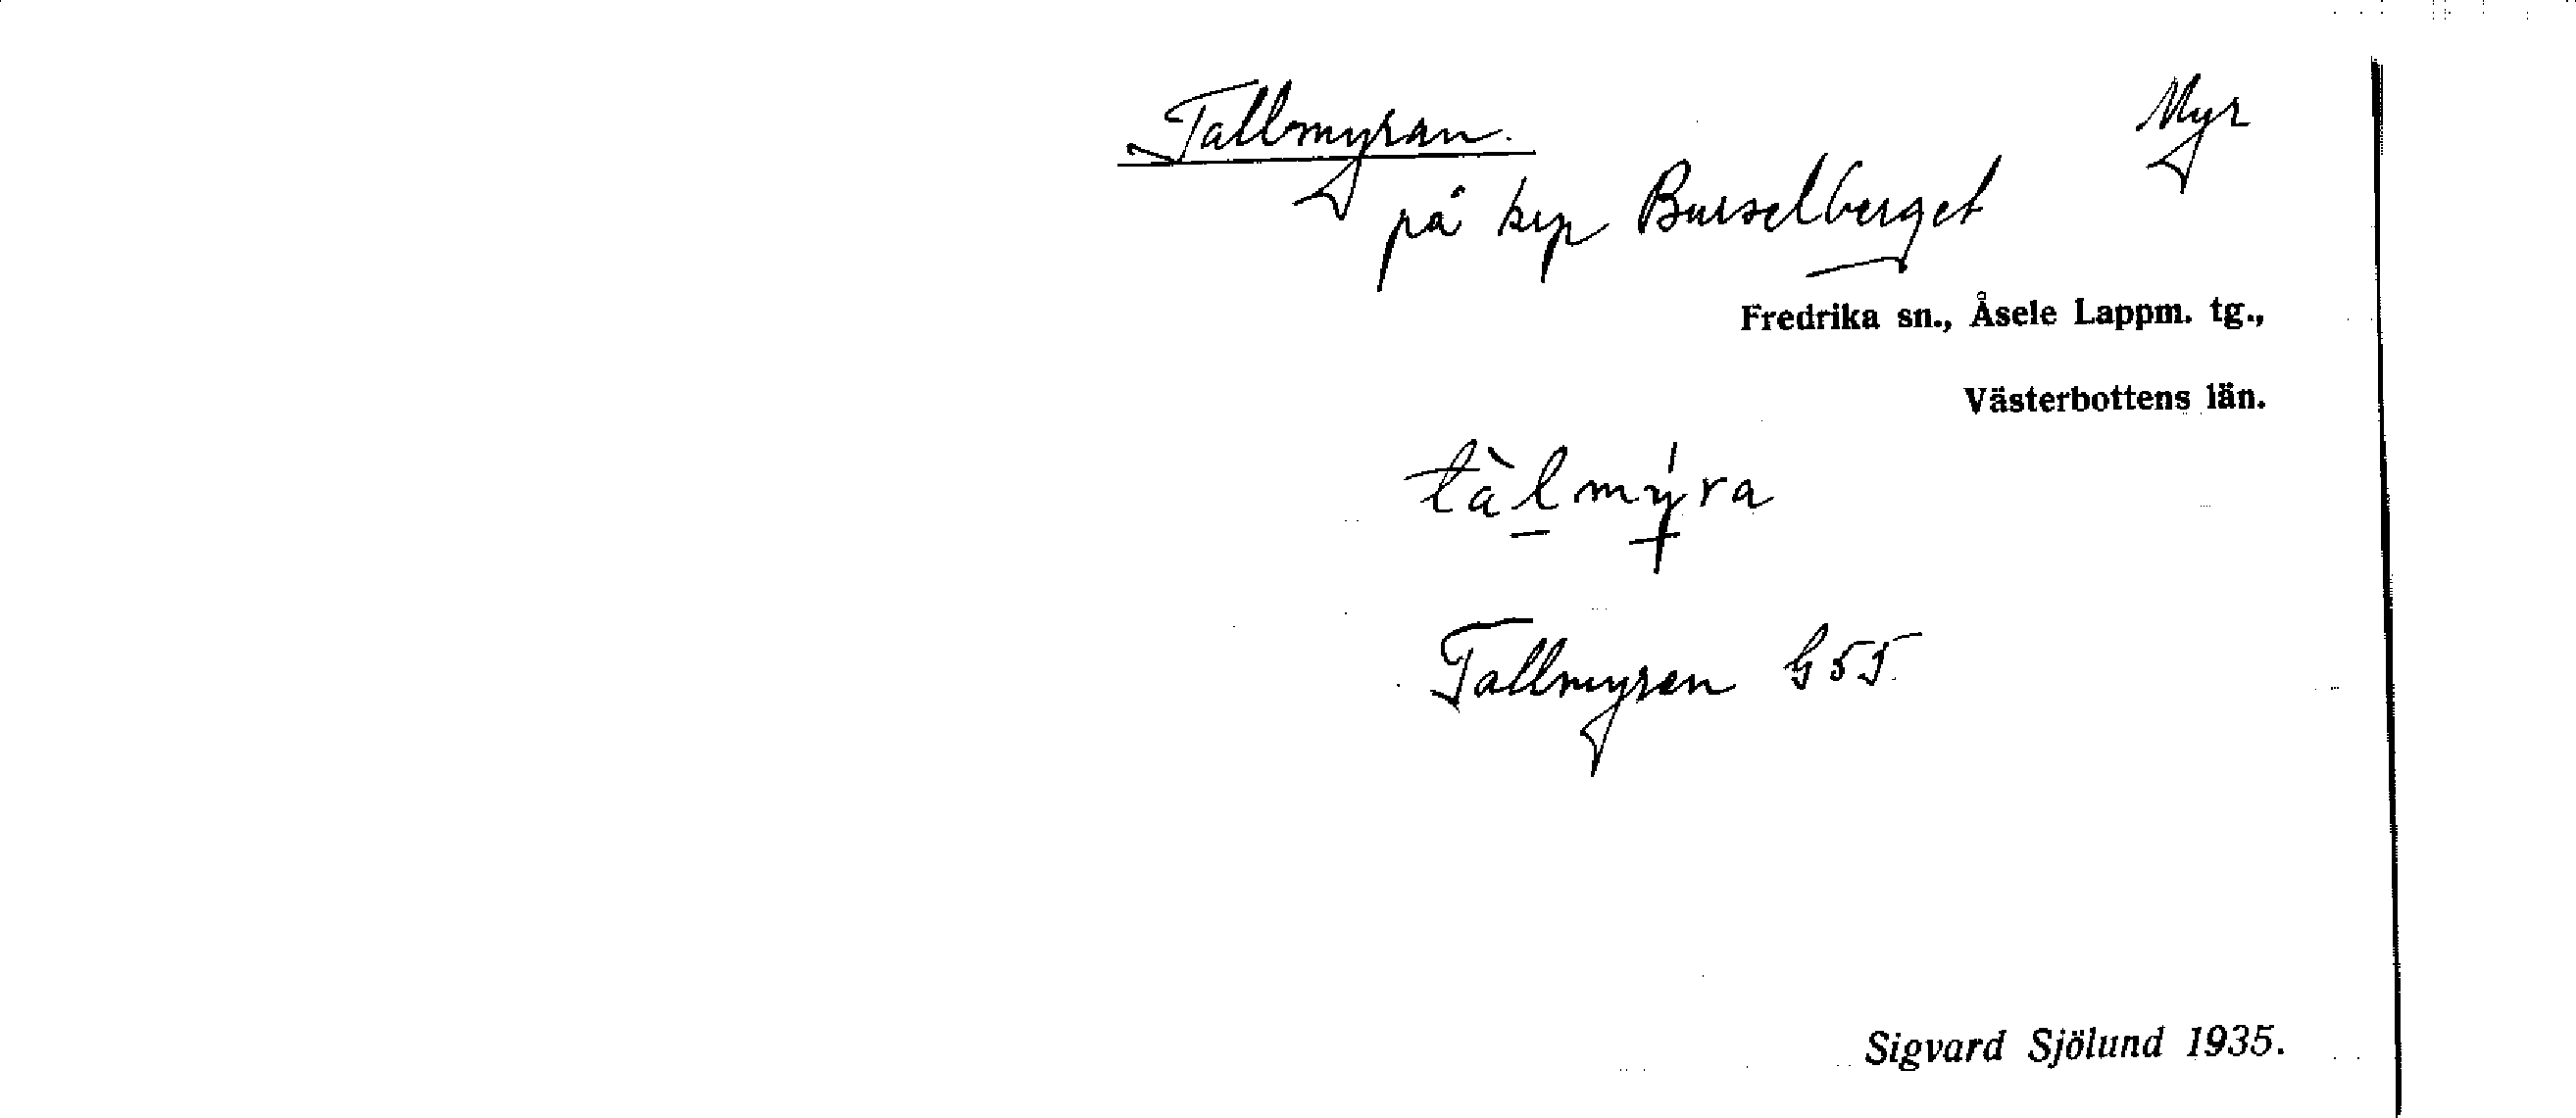 Tallmyran. Myr
på krp Burselberget
Fredrika sn., Åsele Lappm. tg.,
Västerbottens län.
tàl̲mý̲ra
Tallmyran G55
Sigvard Sjölund 1935.